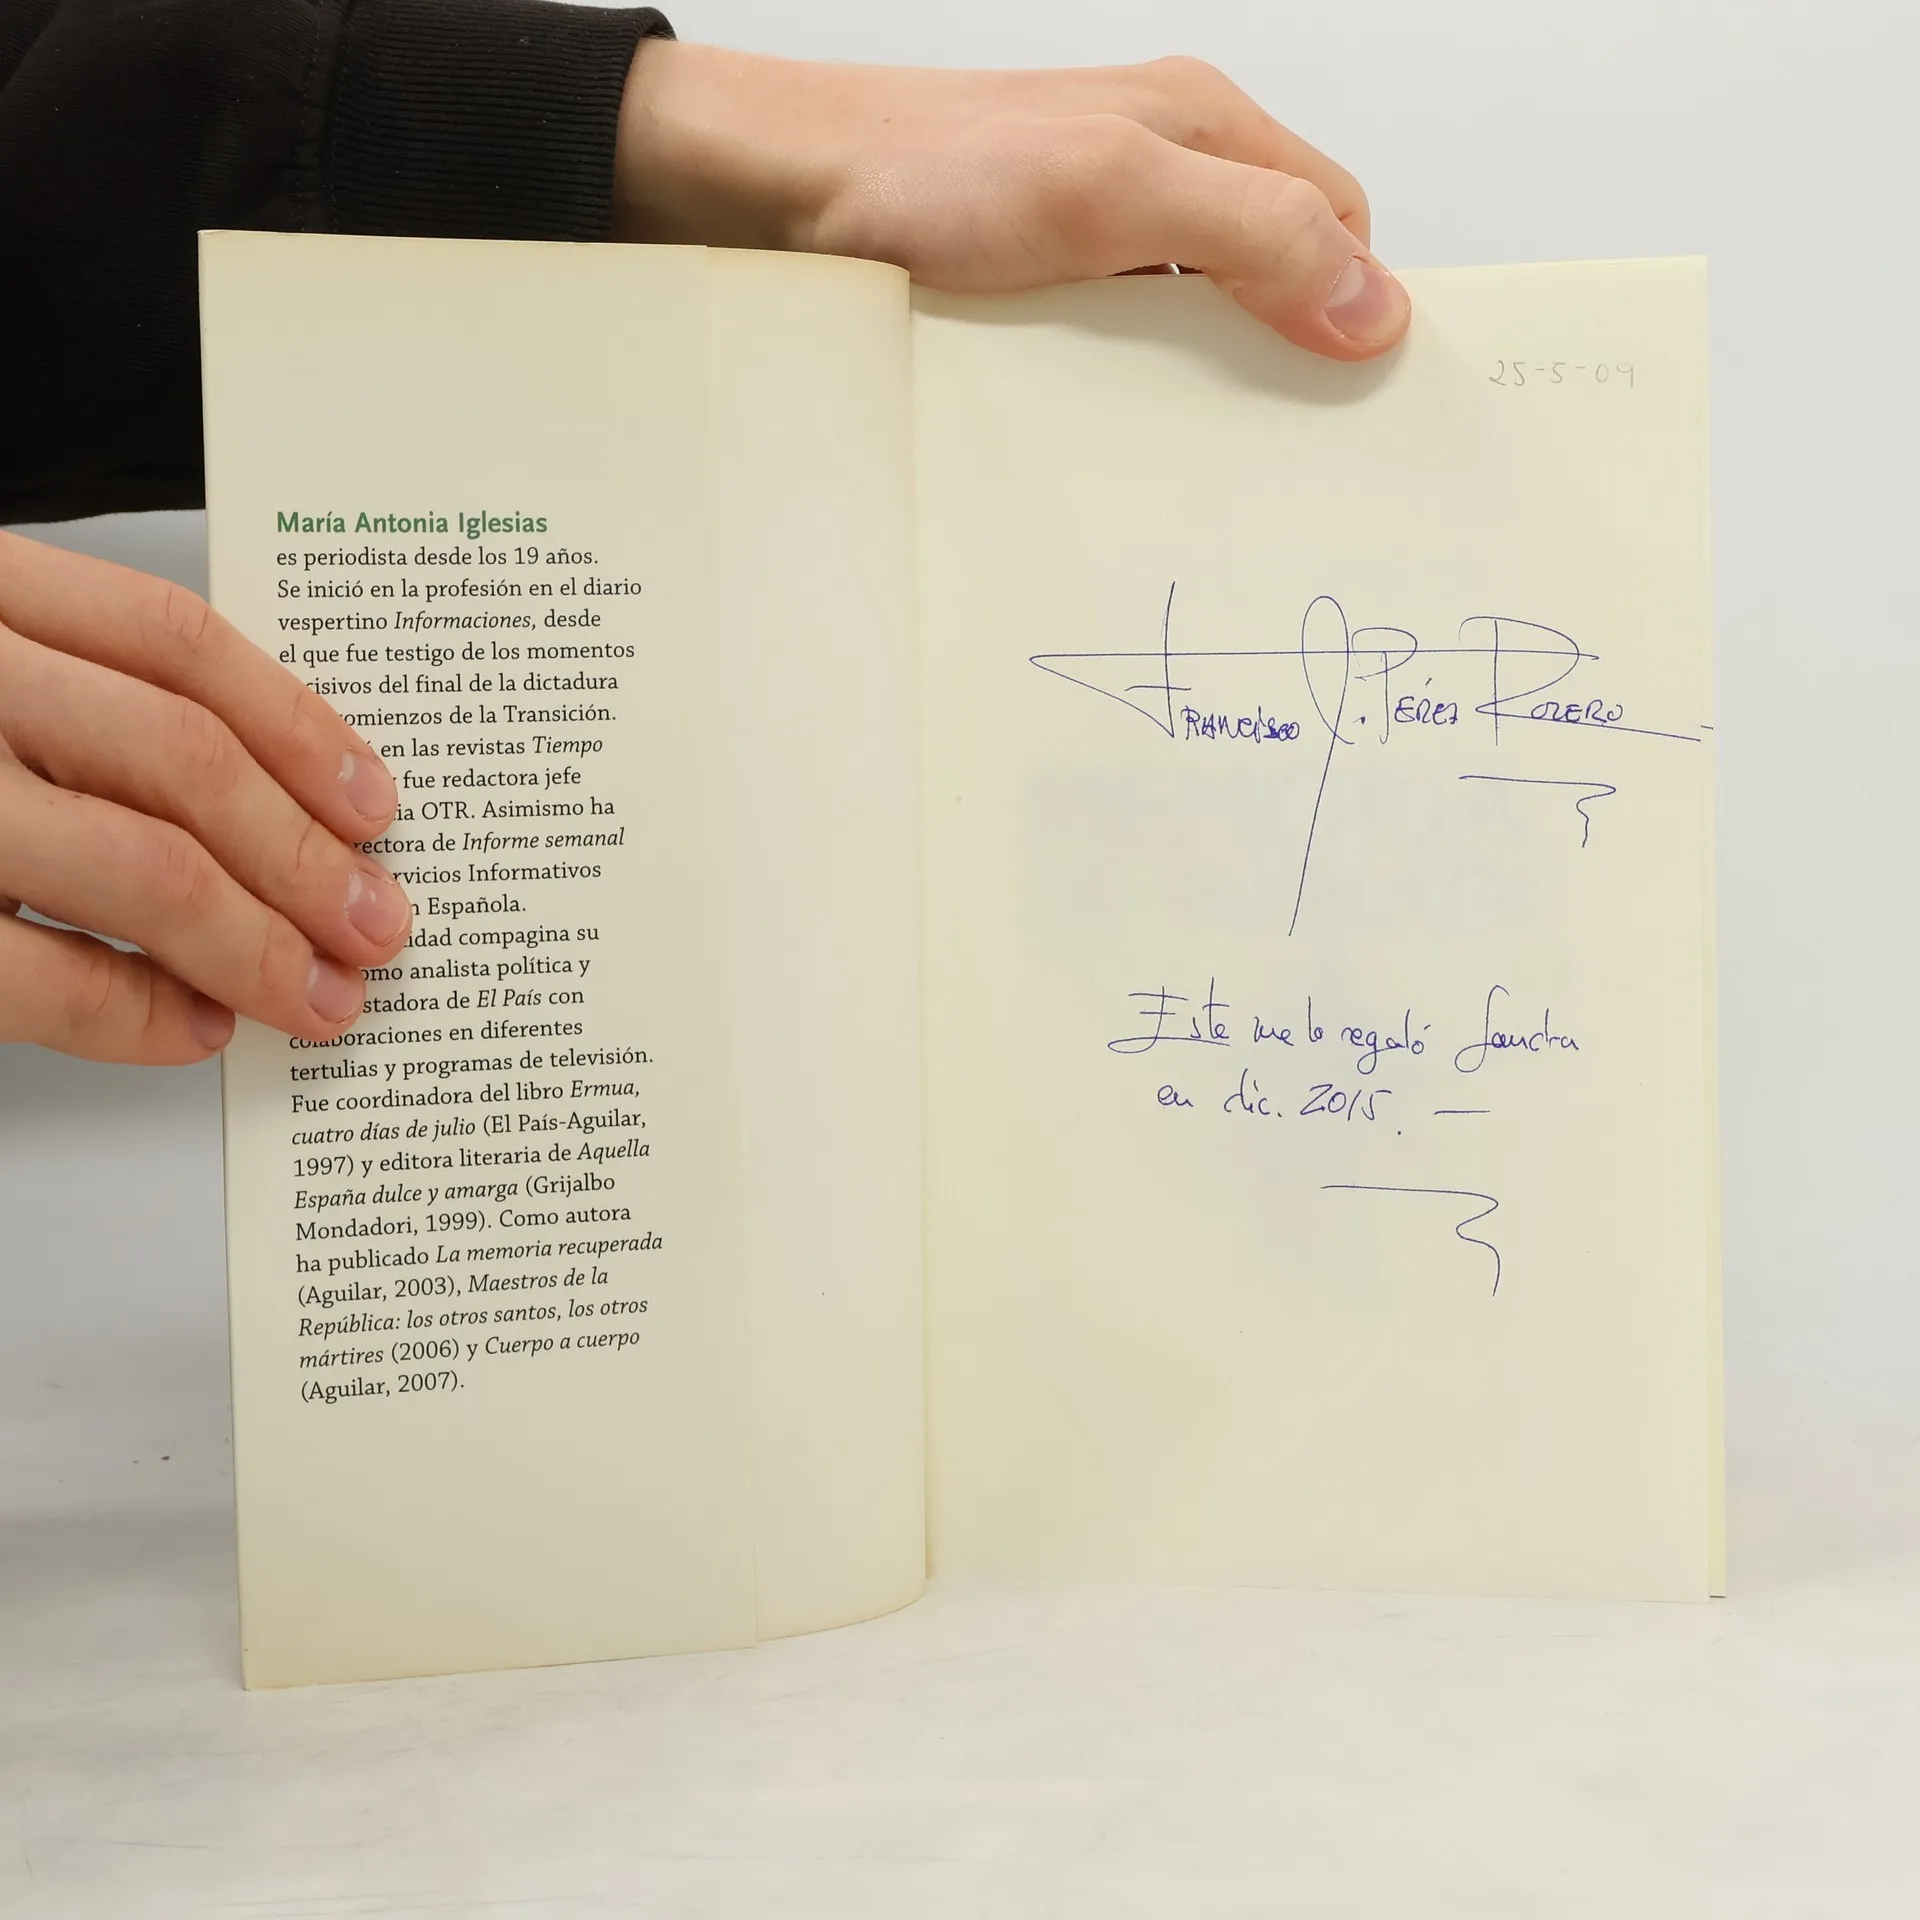 María Antonia Iglesias
es periodista desde los 19 años.
Se inició en la profesión en el diario
vespertino Informaciones, desde
el que fue testigo de los momentos
cisivos del final de la dictadura
omienzos de la Transición.
en las revistas Tiempo
fue redactora jefe
ia OTR. Asimismo ha
rectora de Informe semanal
rvicios Informativos
n Española.
idad compagina su
omo analista política y
stadora de El País con
colaboraciones en diferentes
tertulias y programas de televisión.
Fue coordinadora del libro Ermua,
cuatro días de julio (El País-Aguilar,
1997) y editora literaria de Aquella
España dulce y amarga (Grijalbo
Mondadori, 1999). Como autora
ha publicado La memoria recuperada
(Aguilar, 2003), Maestros de la
República: los otros santos, los otros
mártires (2006) y Cuerpo a cuerpo
(Aguilar, 2007).
25-5-09
Francisco J. Pérez
Este me lo regaló Sandra
en dic. 2015.